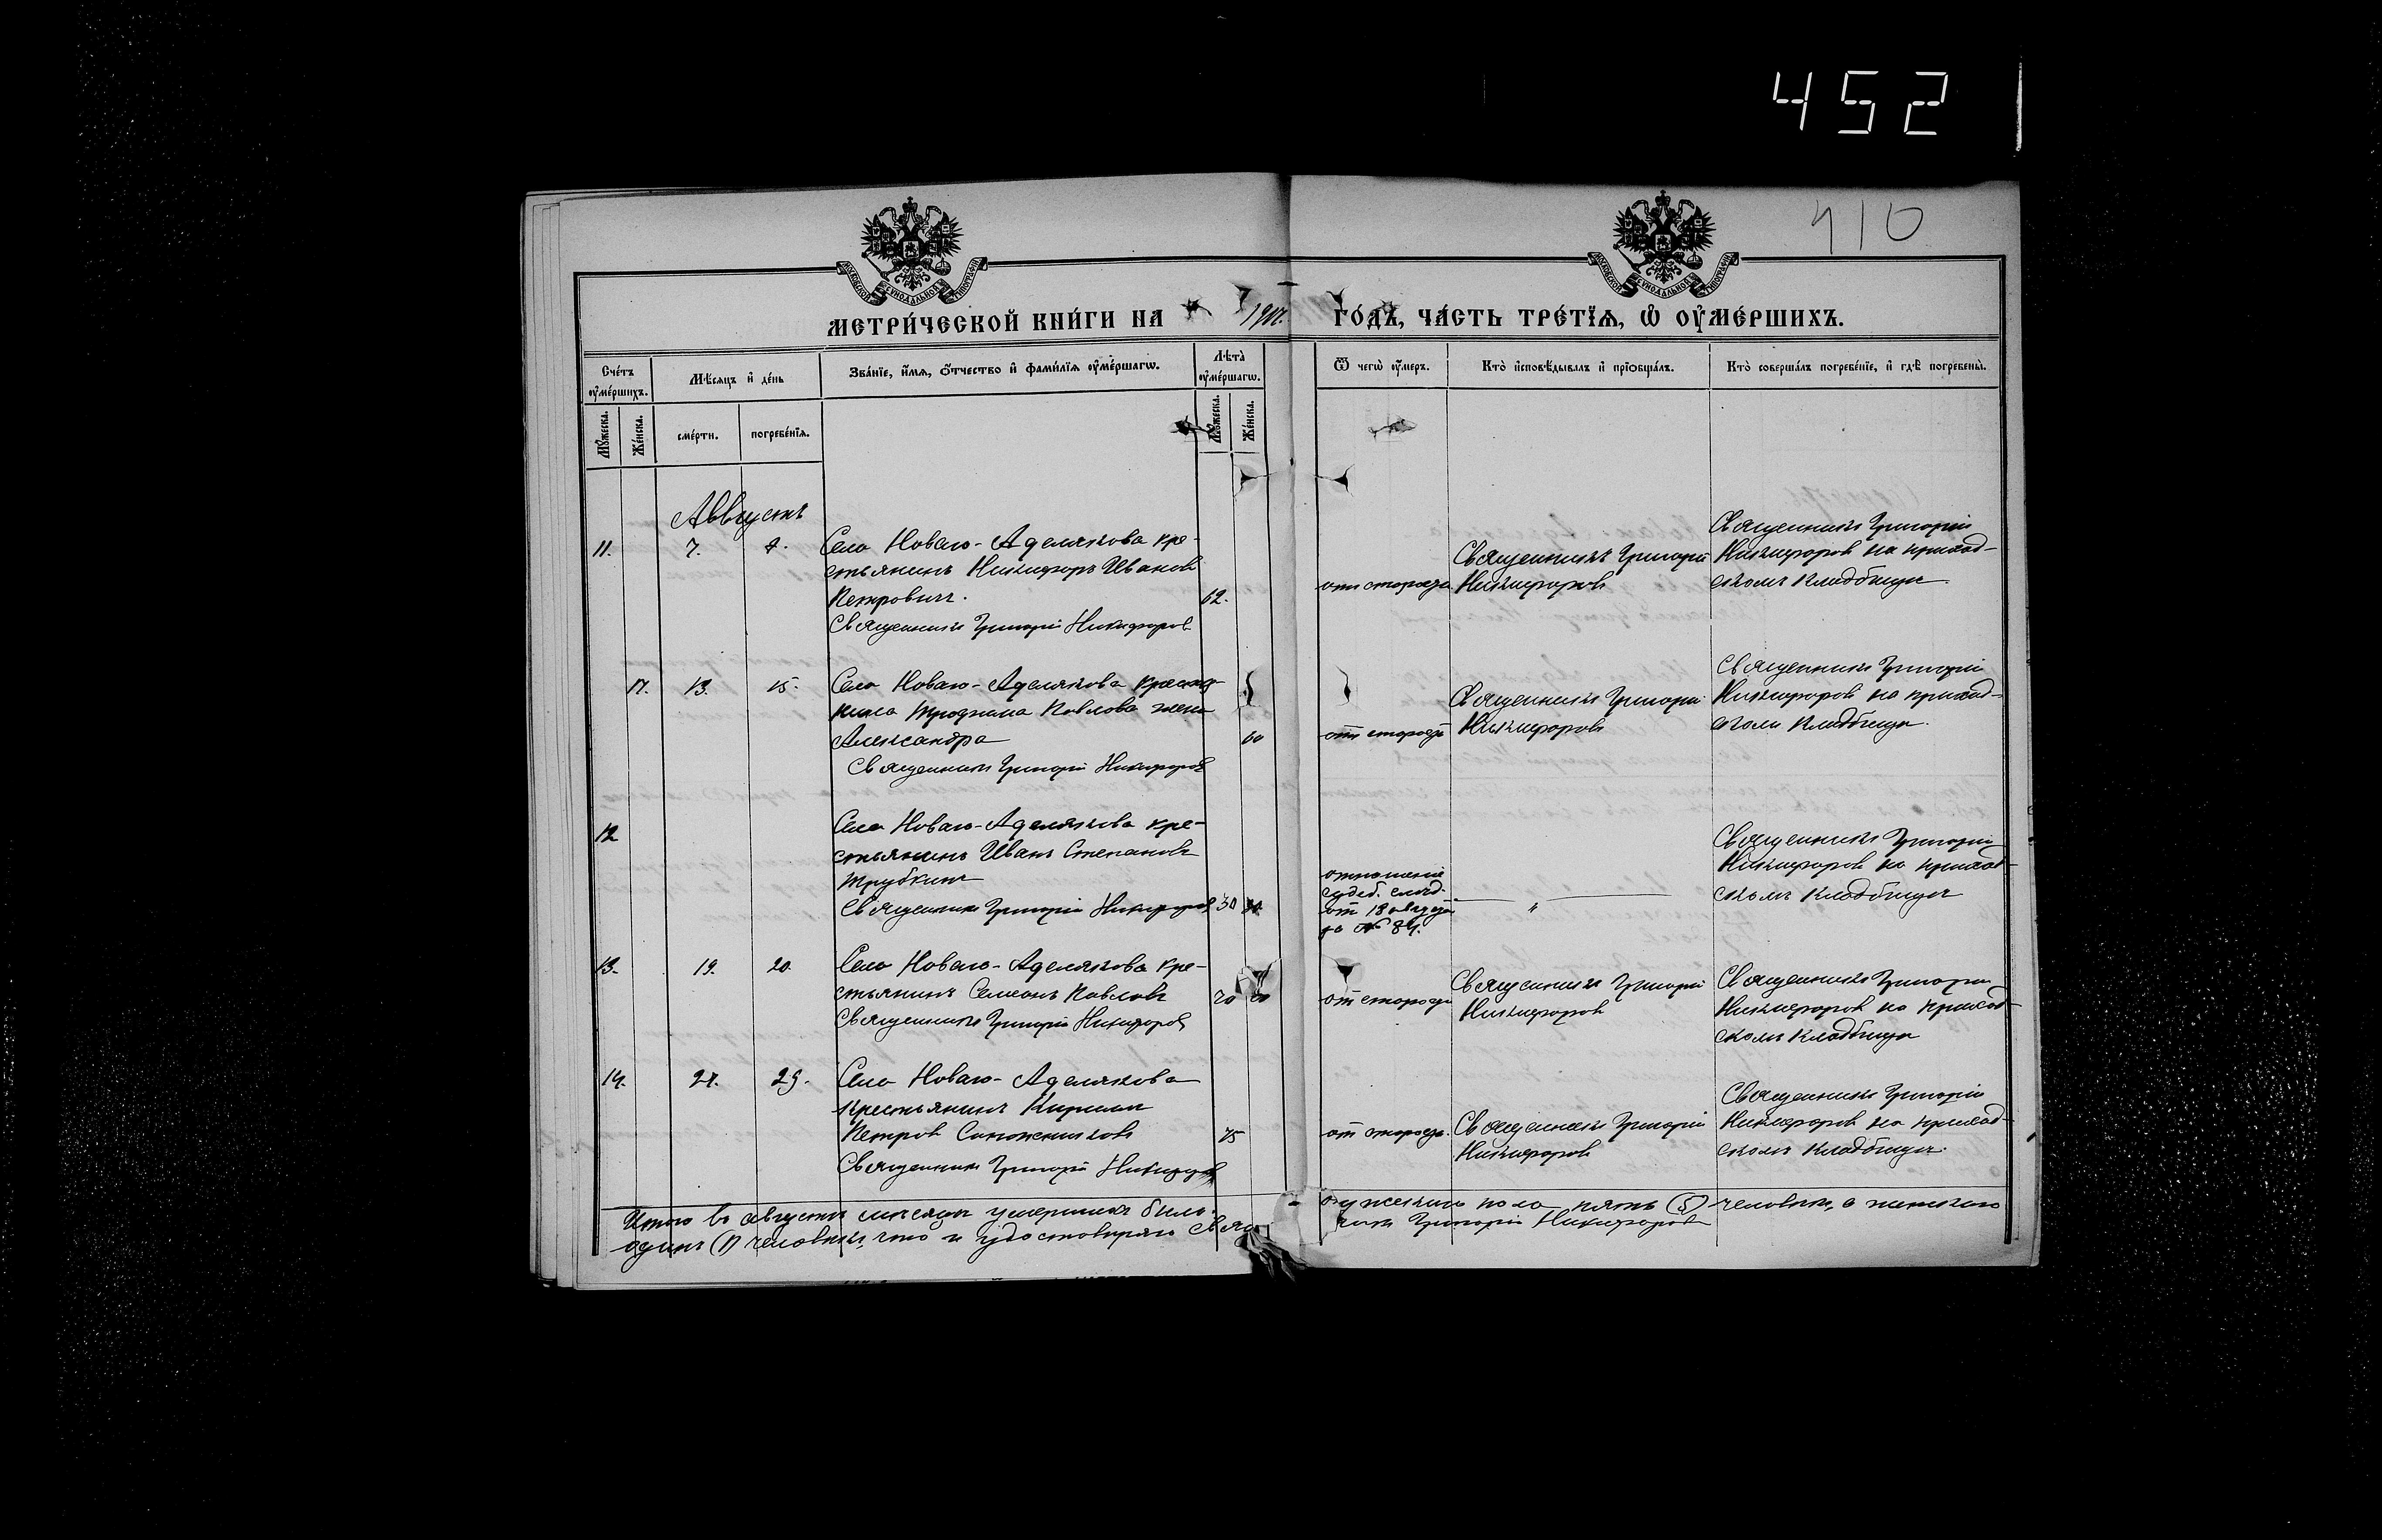 452
410
МЕТРИ́ЧЕСКОЙ КНИ́ГИ НА ГО́ДЪ, ЧА́СТЬ ТРЕ́ТЇѦ, Ѡ҆ ОУ҆МЕ́РШИХЪ.
Сче́тъ оу҆ме́ршихъ.
Мѣ́сѧцъ и҆ де́нь
Зва́нїе, и҆́мѧ, ѻ҆́тчество и҆ фами́лїѧ оу҆ме́ршагѡ.
Лѣ́та оу҆ме́ршагѡ.
Ѿ чегѡ̀ оу҆́меръ.
Кто̀ и҆сповѣ́дывалъ и҆ прїѻбща́лъ.
Кто̀ соверша́лъ погребе́нїе, и҆ гдѣ̀ погребены̀.
Мꙋ́жеска.
Же́нска.
сме́рти.
погребе́нїѧ.
Мꙋ́жеска.
Же́нска.
Августъ
11. 7.
Села Новаго-Аделякова кре-
стьянинъ Никифоръ Ивановъ
Петровичъ.
62.
Священникъ Григорій Никифоровъ
отъ старости
Священникъ Григорій
Никифоровъ
Священникъ Григорій
Никифоровъ на приход-
скомъ кладбищѣ.
17. 13. 15.
Села Новаго-Аделякова крестья-
нина Трофима Павлова жена
Александра
60
Священникъ Григорій Никифоровъ
отъ старости
Священникъ Григорій
Никифоровъ
Священникъ Григорій
Никифоровъ на приход-
скомъ кладбищѣ.
12
Села Новаго-Аделякова кре-
стьянинъ Иванъ Степановъ
Трубкинъ
Священникъ Григорій Никифоровъ
30
отношеніе
судеб. слѣд.
отъ 18 августа
за № 84.
Священникъ Григорій
Никифоровъ на приход-
скомъ кладбищѣ
13. 19. 20.
Села Новаго-Аделякова кре-
стьянинъ Семенъ Павловъ
70
Священникъ Григорій Никифоровъ
отъ старости
Священникъ Григорій
Никифоровъ
Священникъ Григорій
Никифоровъ на приход-
скомъ кладбищѣ
14. 27. 29.
Села Новаго-Аделякова
крестьянинъ Кириллъ
Петровъ Сапожниковъ
75
Священникъ Григорій Никифоровъ
отъ старости.
Священникъ Григорій
Никифоровъ
Священникъ Григорій
Никифоровъ на приход-
скомъ кладбищѣ.
Итого въ августѣ мѣсяцѣ умершихъ было мужескаго пола пять (5) человѣкъ, а женскаго
одинъ (1) человѣкъ, что и удостовѣряю Священникъ Григорій Никифоровъ